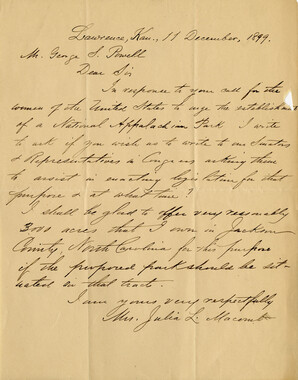 Lawrence, Kan., 11 December, 1899.
Mr. George S. Powell
Dear Sir
In response to your call for the
women of the United States to urge the establishment
of a National Appalachian Park I write
to ask if you wish us to write to our Senators
& Representatives in Congress asking them
to assist in enacting legislation for that
purpose & at what time?
I shall be glad to offer very reasonably
3000 acres that I own in Jackson
County, North Carolina for this purpose
if the proposed park should be sit-
uated on that tract.
I am yours very respectfully
Mrs. Julia L. Macomb